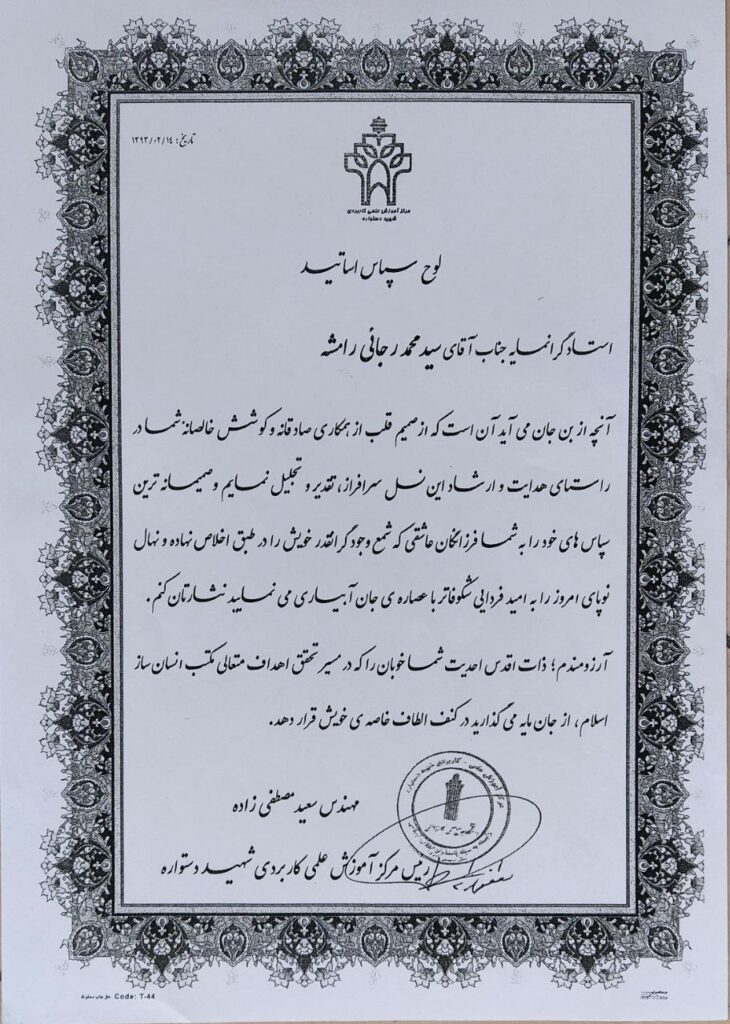 تاریخ: ۱۳۹۳/۰۲/۱۴
مرکز آموزش علمی کاربردی
شهید دستواره
لوح سپاس اساتید
استاد گرانمایه جناب آقای سید محمد رجائی رامشه
آنچه از بن جان می آید آن است که از صمیم قلب از همکاری صادقانه و کوشش خالصانه شما در
راستای هدایت و ارشاد این نسل سرافراز، تقدیر و تجلیل نمایم و صمیمانه ترین
سپاس های خود را به شما فرزانگان عاشقی که شمع وجود گرانقدر خویش را در طبق اخلاص نهاده و نهال
نوپای امروز را به امید فردایی شکوفاتر با عصاره ی جان آبیاری می نمایید نثارتان کنم.
آرزومندم؛ ذات اقدس احدیت شما خوبان را که در مسیر تحقق اهداف متعالی مکتب انسان ساز
اسلام، از جان مایه می گذارید در کنف الطاف خاصه ی خویش قرار دهد.
مهندس سعید مصطفی زاده
رییس مرکز آموزش علمی کاربردی شهید دستواره
حق چاپ محفوظ Code: T-44